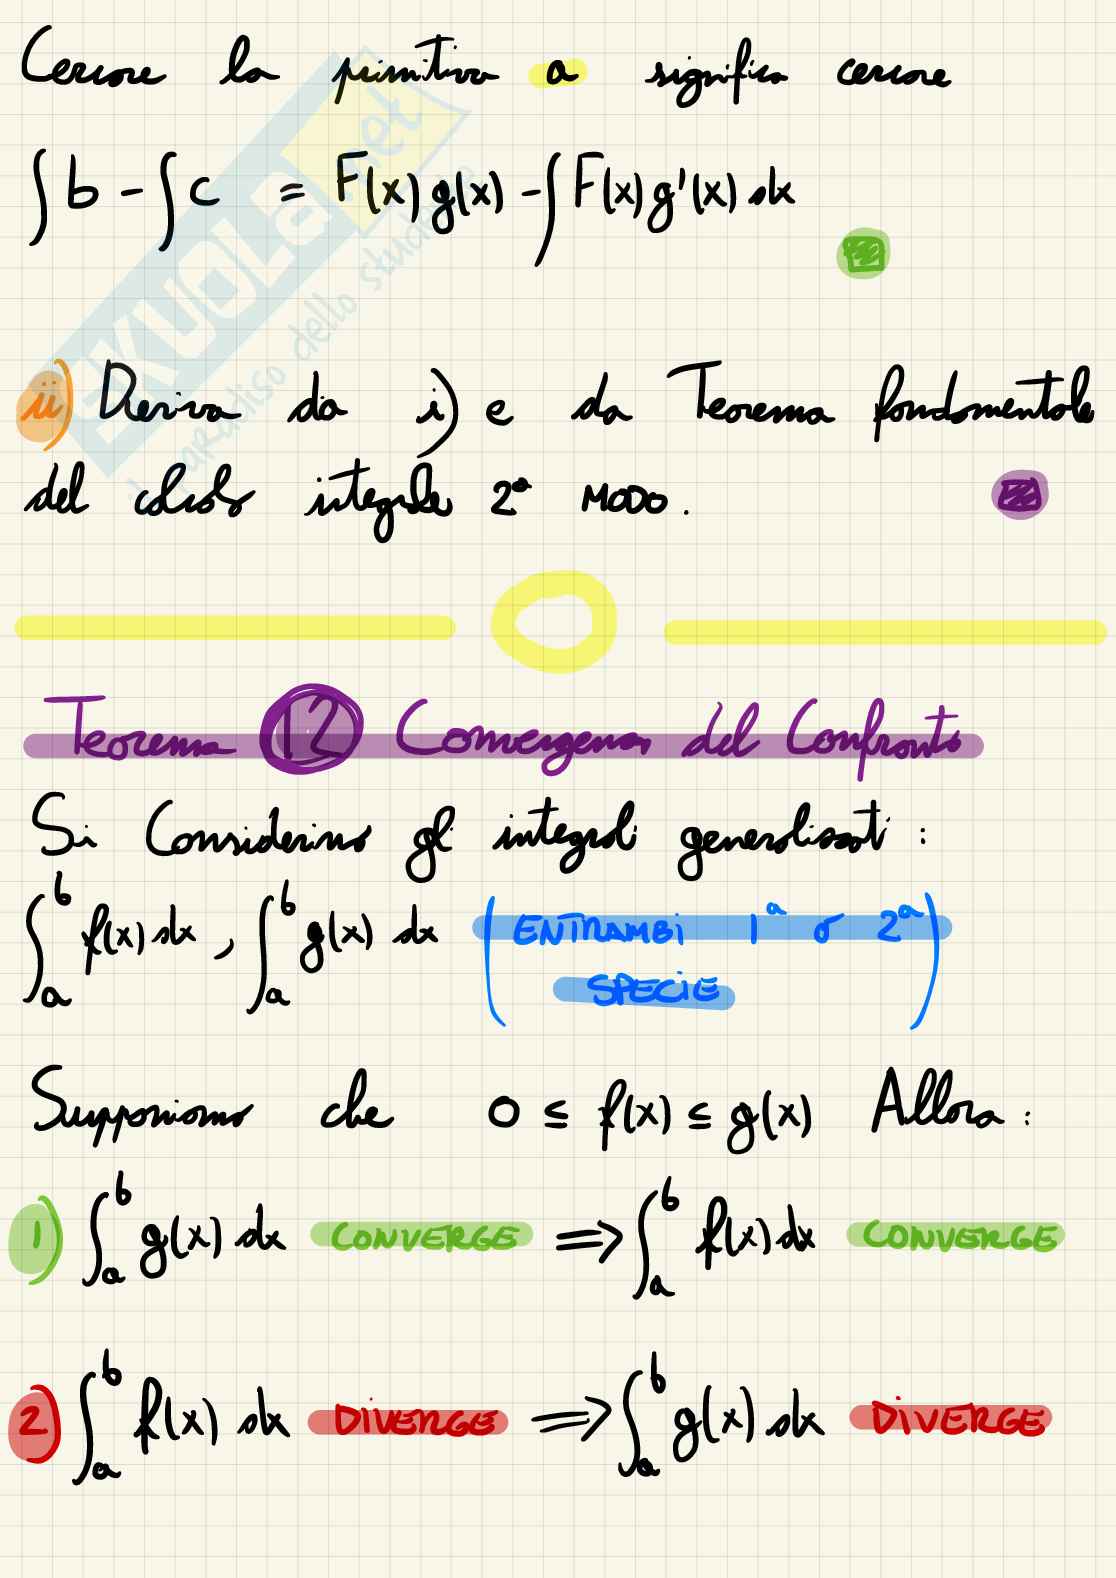 Cercare la primitiva a significa cercare
∫ b - ∫ c = F(x) g(x) - ∫ F(x) g'(x) dx
ii) Deriva da i) e da Teorema fondamentale
del calcolo integrale 2° MODO.
Teorema 12 Convergenza del Confronto
Si Considerino gli integrali generalizzati:
∫_a^b f(x) dx, ∫_a^b g(x) dx (ENTRAMBI 1ª o 2ª
SPECIE)
Supponiamo che 0 ≤ f(x) ≤ g(x) Allora:
1) ∫_a^b g(x) dx CONVERGE ⇒ ∫_a^b f(x) dx CONVERGE
2) ∫_a^b f(x) dx DIVERGE ⇒ ∫_a^b g(x) dx DIVERGE
SKUOLA.net
paradiso dello studente